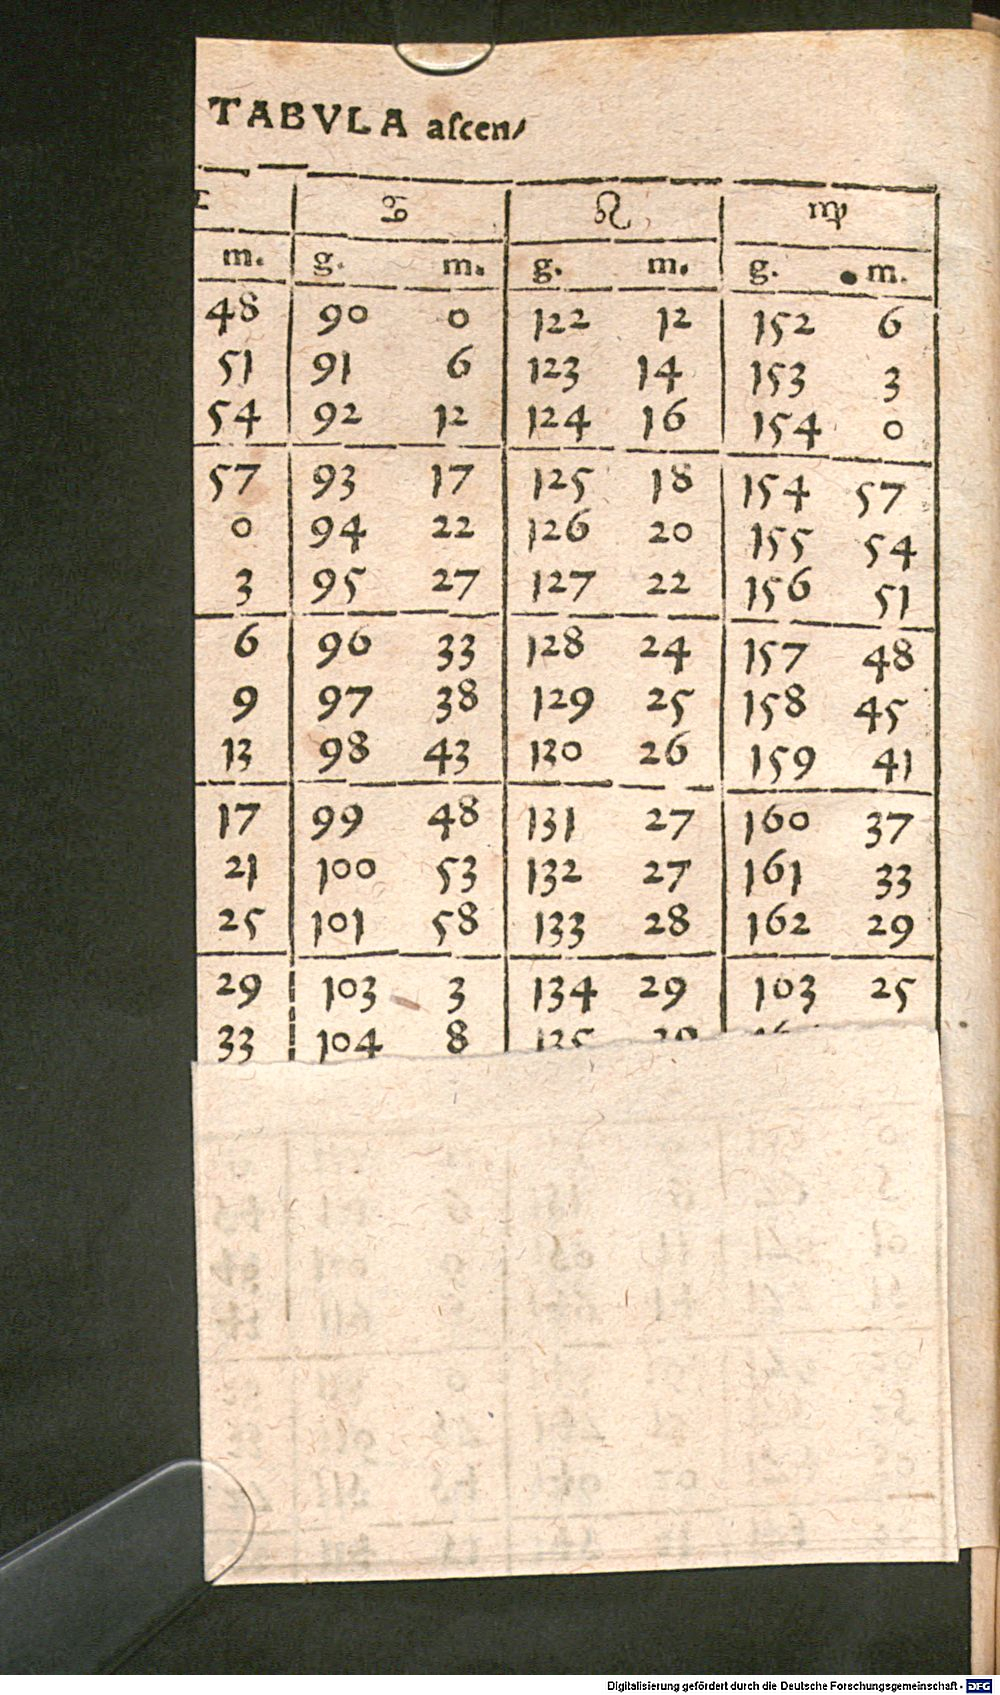 TABVLA aſcen⸗
♋ ♌ ♍
m. g. m. g. m. g. m.
48 90 0 122 12 152 6
51 91 6 123 14 153 3
54 92 12 124 16 154 0
57 93 17 125 18 154 57
0 94 22 126 20 155 54
3 95 27 127 22 156 51
6 96 33 128 24 157 48
9 97 38 129 25 158 45
13 98 43 130 26 159 41
17 99 48 131 27 160 37
21 100 53 132 27 161 33
25 101 58 133 28 162 29
29 103 3 134 29 103 25
33 104 8 135 29
Digitalisierung gefördert durch die Deutsche Forschungsgemeinschaft - DFG